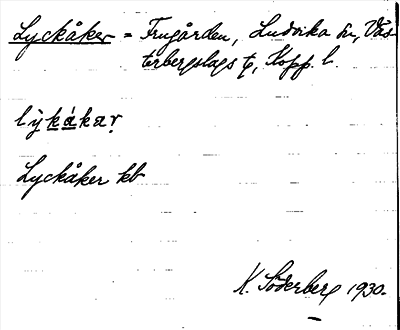 Lyckåker = Frugården, Ludvika sn, Väs-
terbergslags t, Kopp. l.
lỳkákar
Lyckåker kb
K. Söderberg 1930.